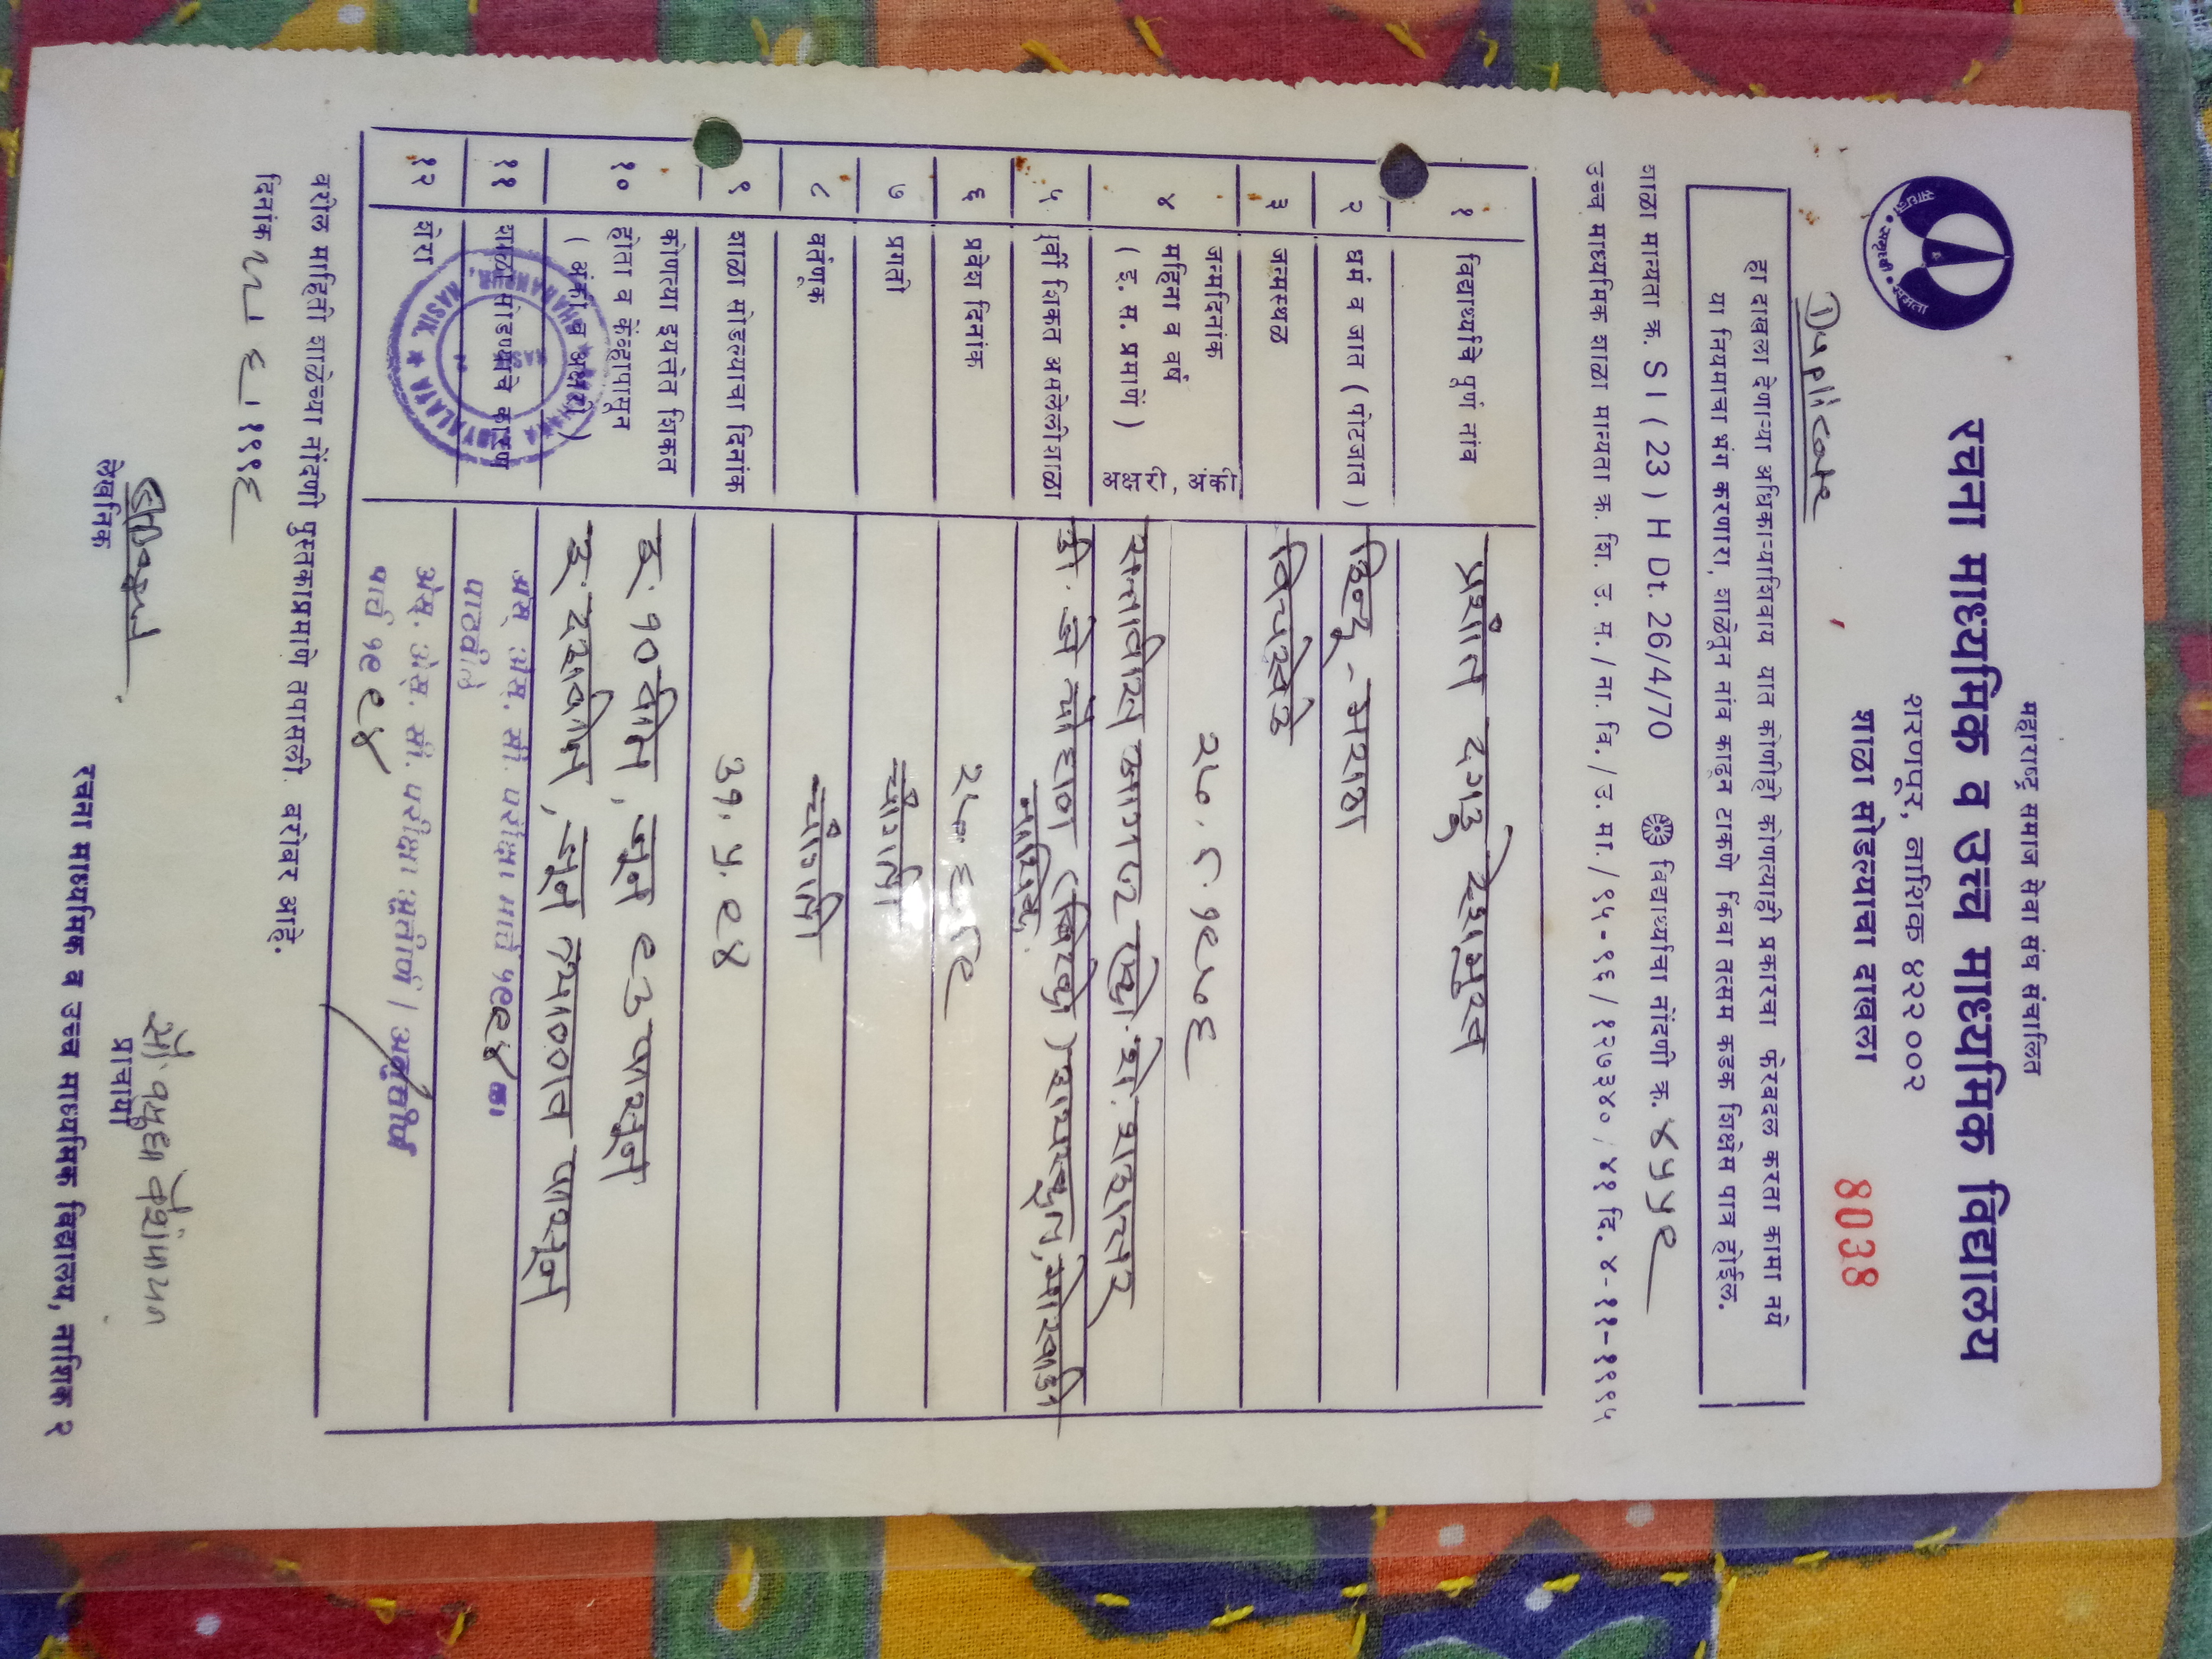 महाराष्ट्र समाज सेवा संघ संचालित
रचना माध्यमिक व उच्च माध्यमिक विद्यालय
शरणपूर, नाशिक ४२२००२
शाळा सोडल्याचा दाखला
8038
Duplicate
हा दाखला देणाऱ्या अधिकाऱ्याशिवाय यात कोणीही कोणत्याही प्रकारचा फेरबदल करता कामा नये
या नियमाचा भंग करणारा, शाळेतून नांव काढून टाकणे किंवा तत्सम कडक शिक्षेस पात्र होईल.
शाळा मान्यता क्र. S 1 ( 23 ) H Dt. 26/4/70 विद्यार्थ्याचा नोंदणी क्र. ४५५९
उच्च माध्यमिक शाळा मान्यता क्र. शि. उ. म. / ना. वि. / उ. मा. / ९५-९६ / १२७३४० / ४९ दि. ४-११-१९९५
१ विद्यार्थ्याचे पूर्ण नांव प्रशांत दगडू देशमुख
२ धर्म व जात ( पोटजात ) हिन्दू - मराठा
३ जन्मस्थळ चिन्चखेडे
४ जन्मदिनांक अंकी २७.८.१९७६
महिना व वर्ष
( इ. स. प्रमाणे ) अक्षरी, सत्तावीस ऑगस्ट एकोणीसशे शहात्तर
५ पूर्वी शिकत असलेली शाळा
नाशिक
६ प्रवेश दिनांक २७.६.८९
७ प्रगती चांगली
८ वर्तणूक चांगली
९ शाळा सोडल्याचा दिनांक ३१.५.९४
१० कोणत्या इयत्तेत शिकत इ. १० वीत, जून ९३ पासून
होता व केंव्हापासून
( अंकी व अक्षरी ) इ. दहावीत, जून त्र्याण्णव पासून
११ शाळा सोडण्याचे कारण अेस्. अेस्. सी. परीक्षा मार्च १९९४ ला
पाठविले
१२ शेरा अेस्. अेस्. सी. परीक्षा उत्तीर्ण / अनुत्तीर्ण
मार्च १९९४
वरील माहिती शाळेच्या नोंदणी पुस्तकाप्रमाणे तपासली. बरोबर आहे.
लेखनिक
प्राचार्या
रचना माध्यमिक व उच्च माध्यमिक विद्यालय, नाशिक २